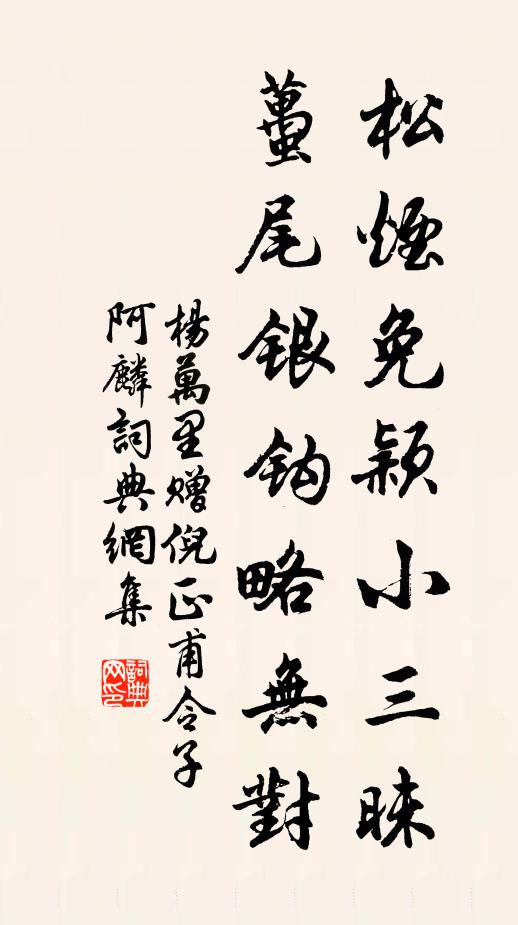 松煙兔颖小三昧
蠆尾銀鈎略無對
楊萬里贈倪正甫令子
阿麟詞典網集
詞典网印